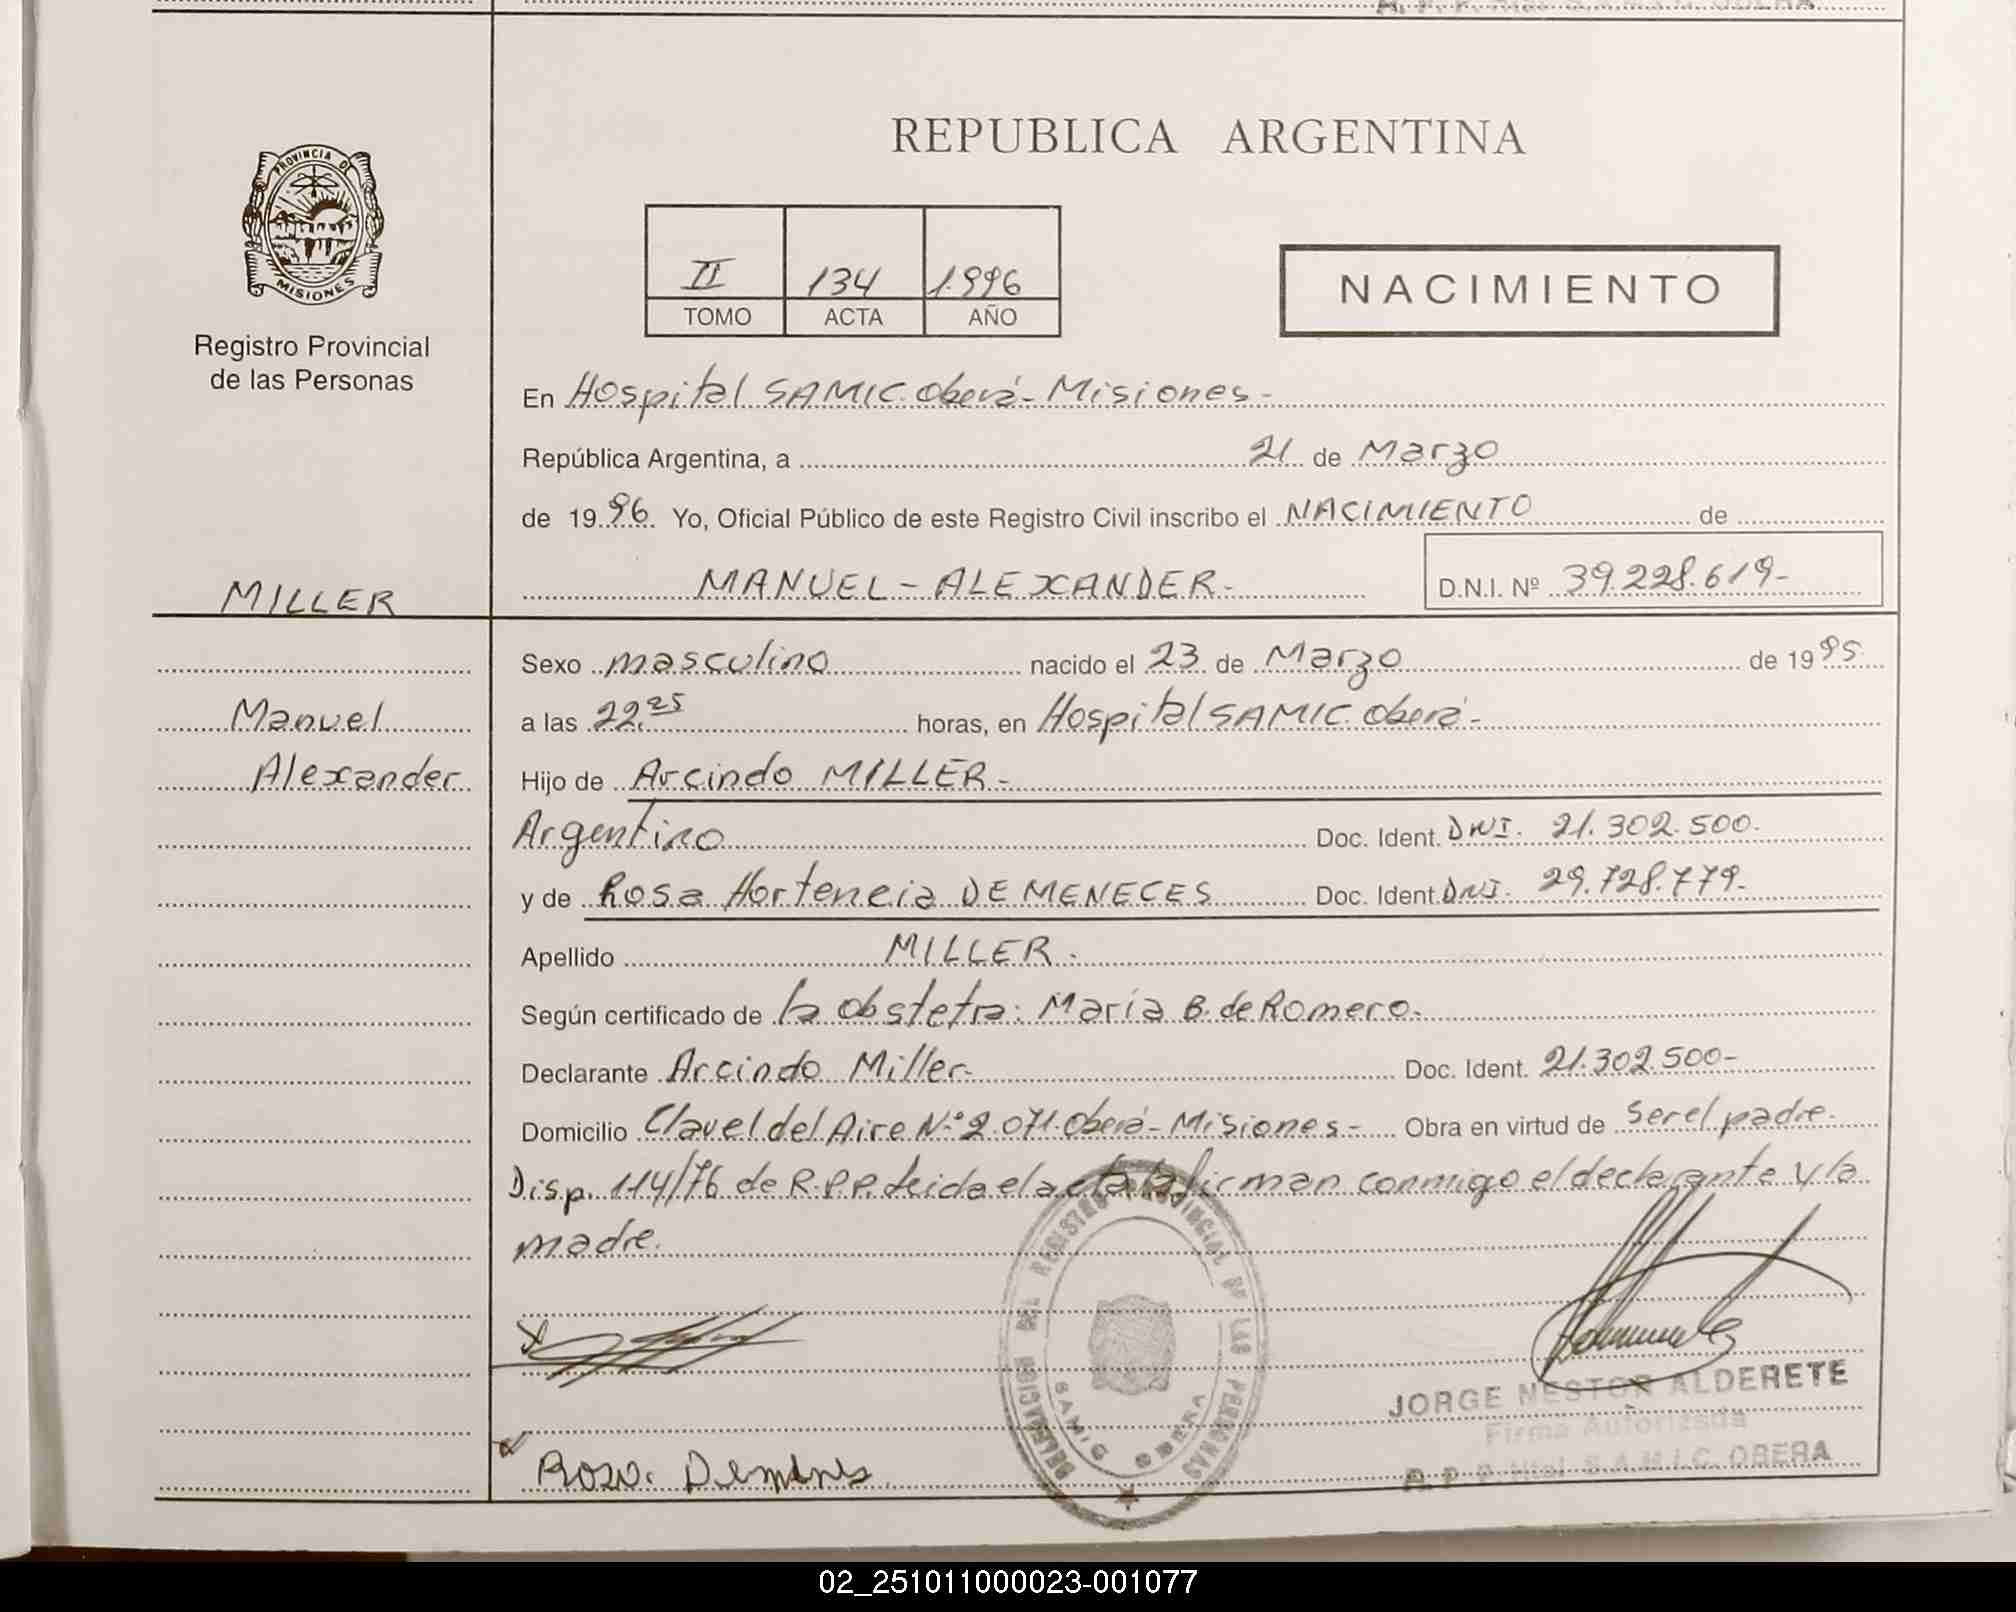 PROVINCIA DE
MISIONES
Registro Provincial
de las Personas
MILLER
Manuel
Alexander
REPUBLICA ARGENTINA
II 134 1.996
TOMO ACTA AÑO
NACIMIENTO
En Hospital SAMIC. Oberá - Misiones -
República Argentina, a 21 de Marzo
de 19 96 Yo, Oficial Público de este Registro Civil inscribo el NACIMIENTO de
MANUEL - ALEXANDER - D.N.I. Nº 39.228.619-
Sexo masculino nacido el 23 de Marzo de 19 95
a las 22.25 horas, en Hospital SAMIC. Oberá -
Hijo de Arcindo MILLER -
Argentino Doc. Ident. DNI. 21.302.500.
y de Rosa Hortencia DE MENECES Doc. Ident. DNI. 29.728.779.-
Apellido MILLER.
Según certificado de la obstetra: María B. de Romero.
Declarante Arcindo Miller - Doc. Ident. 21.302.500-
Domicilio Clavel del Aire N.º 2.071. Oberá - Misiones - Obra en virtud de Ser el padre.
Disp. 114/76 de R.P.P. Leida el acta la firman conmigo el declarante y la
madre.
DELEGACION DEL REGISTRO PROVINCIAL DE LAS PERSONAS
SAMIC OBERA
JORGE NESTOR ALDERETE
Firma Autorizada
R. P. P. Htal. S.A.M.I.C. OBERA
Rosa
02_251011000023-001077